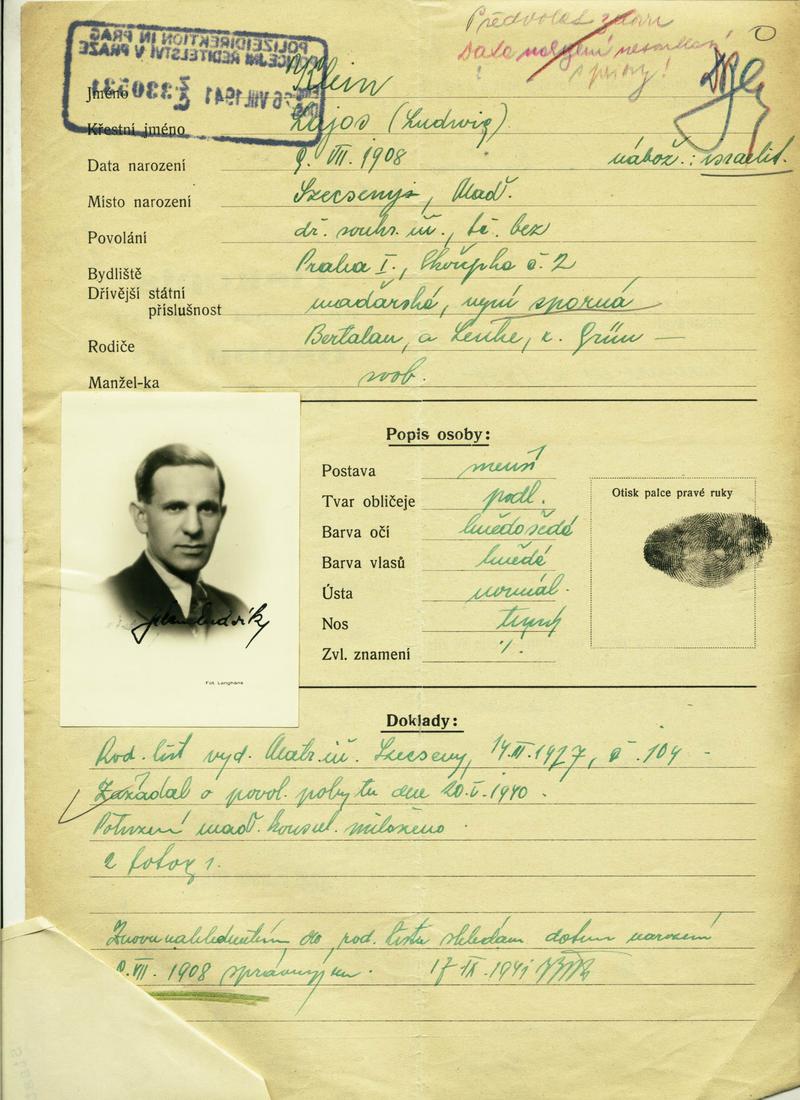 Předvolat
Data
POLIZEIDIREKTION IN PRAG
POLICEJNÍ ŘEDITELSTVÍ V PRAZE
26 VIII. 1941
Jméno Klein
Křestní jméno Lajos (Ludwig)
Data narození 9. VII. 1908 nábož.: israelit.
Místo narození Szecsenyi, Maď.
Povolání dř. soukr. úř., tč. bez
Bydliště Praha I., Skořepka č. 2
Dřívější státní
příslušnost maďarská, nyní sporná
Rodiče Bertalan, a Lenke, r. Grün —
Manžel-ka svob.
Popis osoby:
Postava menší
Tvar obličeje podl.
Barva očí hnědošedé
Barva vlasů hnědé
Ústa normál.
Nos
Zvl. znamení ./.
Otisk palce pravé ruky
Klein Ludvík
Fot. Langhans
Doklady:
Rod. list vyd. Matr. úř. Szecseny, 1927, č. 104 -
Zažádal o povol. pobytu dne 20.V.1940.
Potvrzení maď. konsul. přiloženo.
2 fotogr.
Znovu nahlédnutím do rod. listu shledám datum narození
9.VII. 1908 správným. 17 IX. 1941